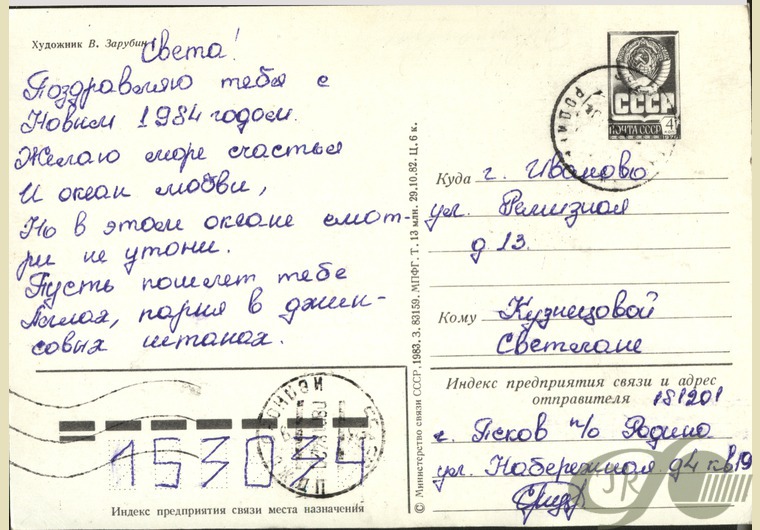 Художник В. Зарубин
Света!
Поздравляю тебя с
Новым 1984 годом.
Желаю море счастья
И океан любви,
Но в этом океане смот-
ри не утони.
Пусть пошлет тебе
Аллах, парня в джин-
совых штанах.
СССР
ПОЧТА СССР 4
Куда г. Иваново
ул. Ремизная
д 13.
Кому Кузнецовой
Светлане
Индекс предприятия связи и адрес
отправителя 181201
г. Псков п/о Родина
ул. Набережная д4 кв 19
153034
Индекс предприятия связи места назначения
© Министерство связи СССР, 1983. З. 83159. МПФГ. Т. 13 млн. 29.10.82. Ц. 6 к.
JR